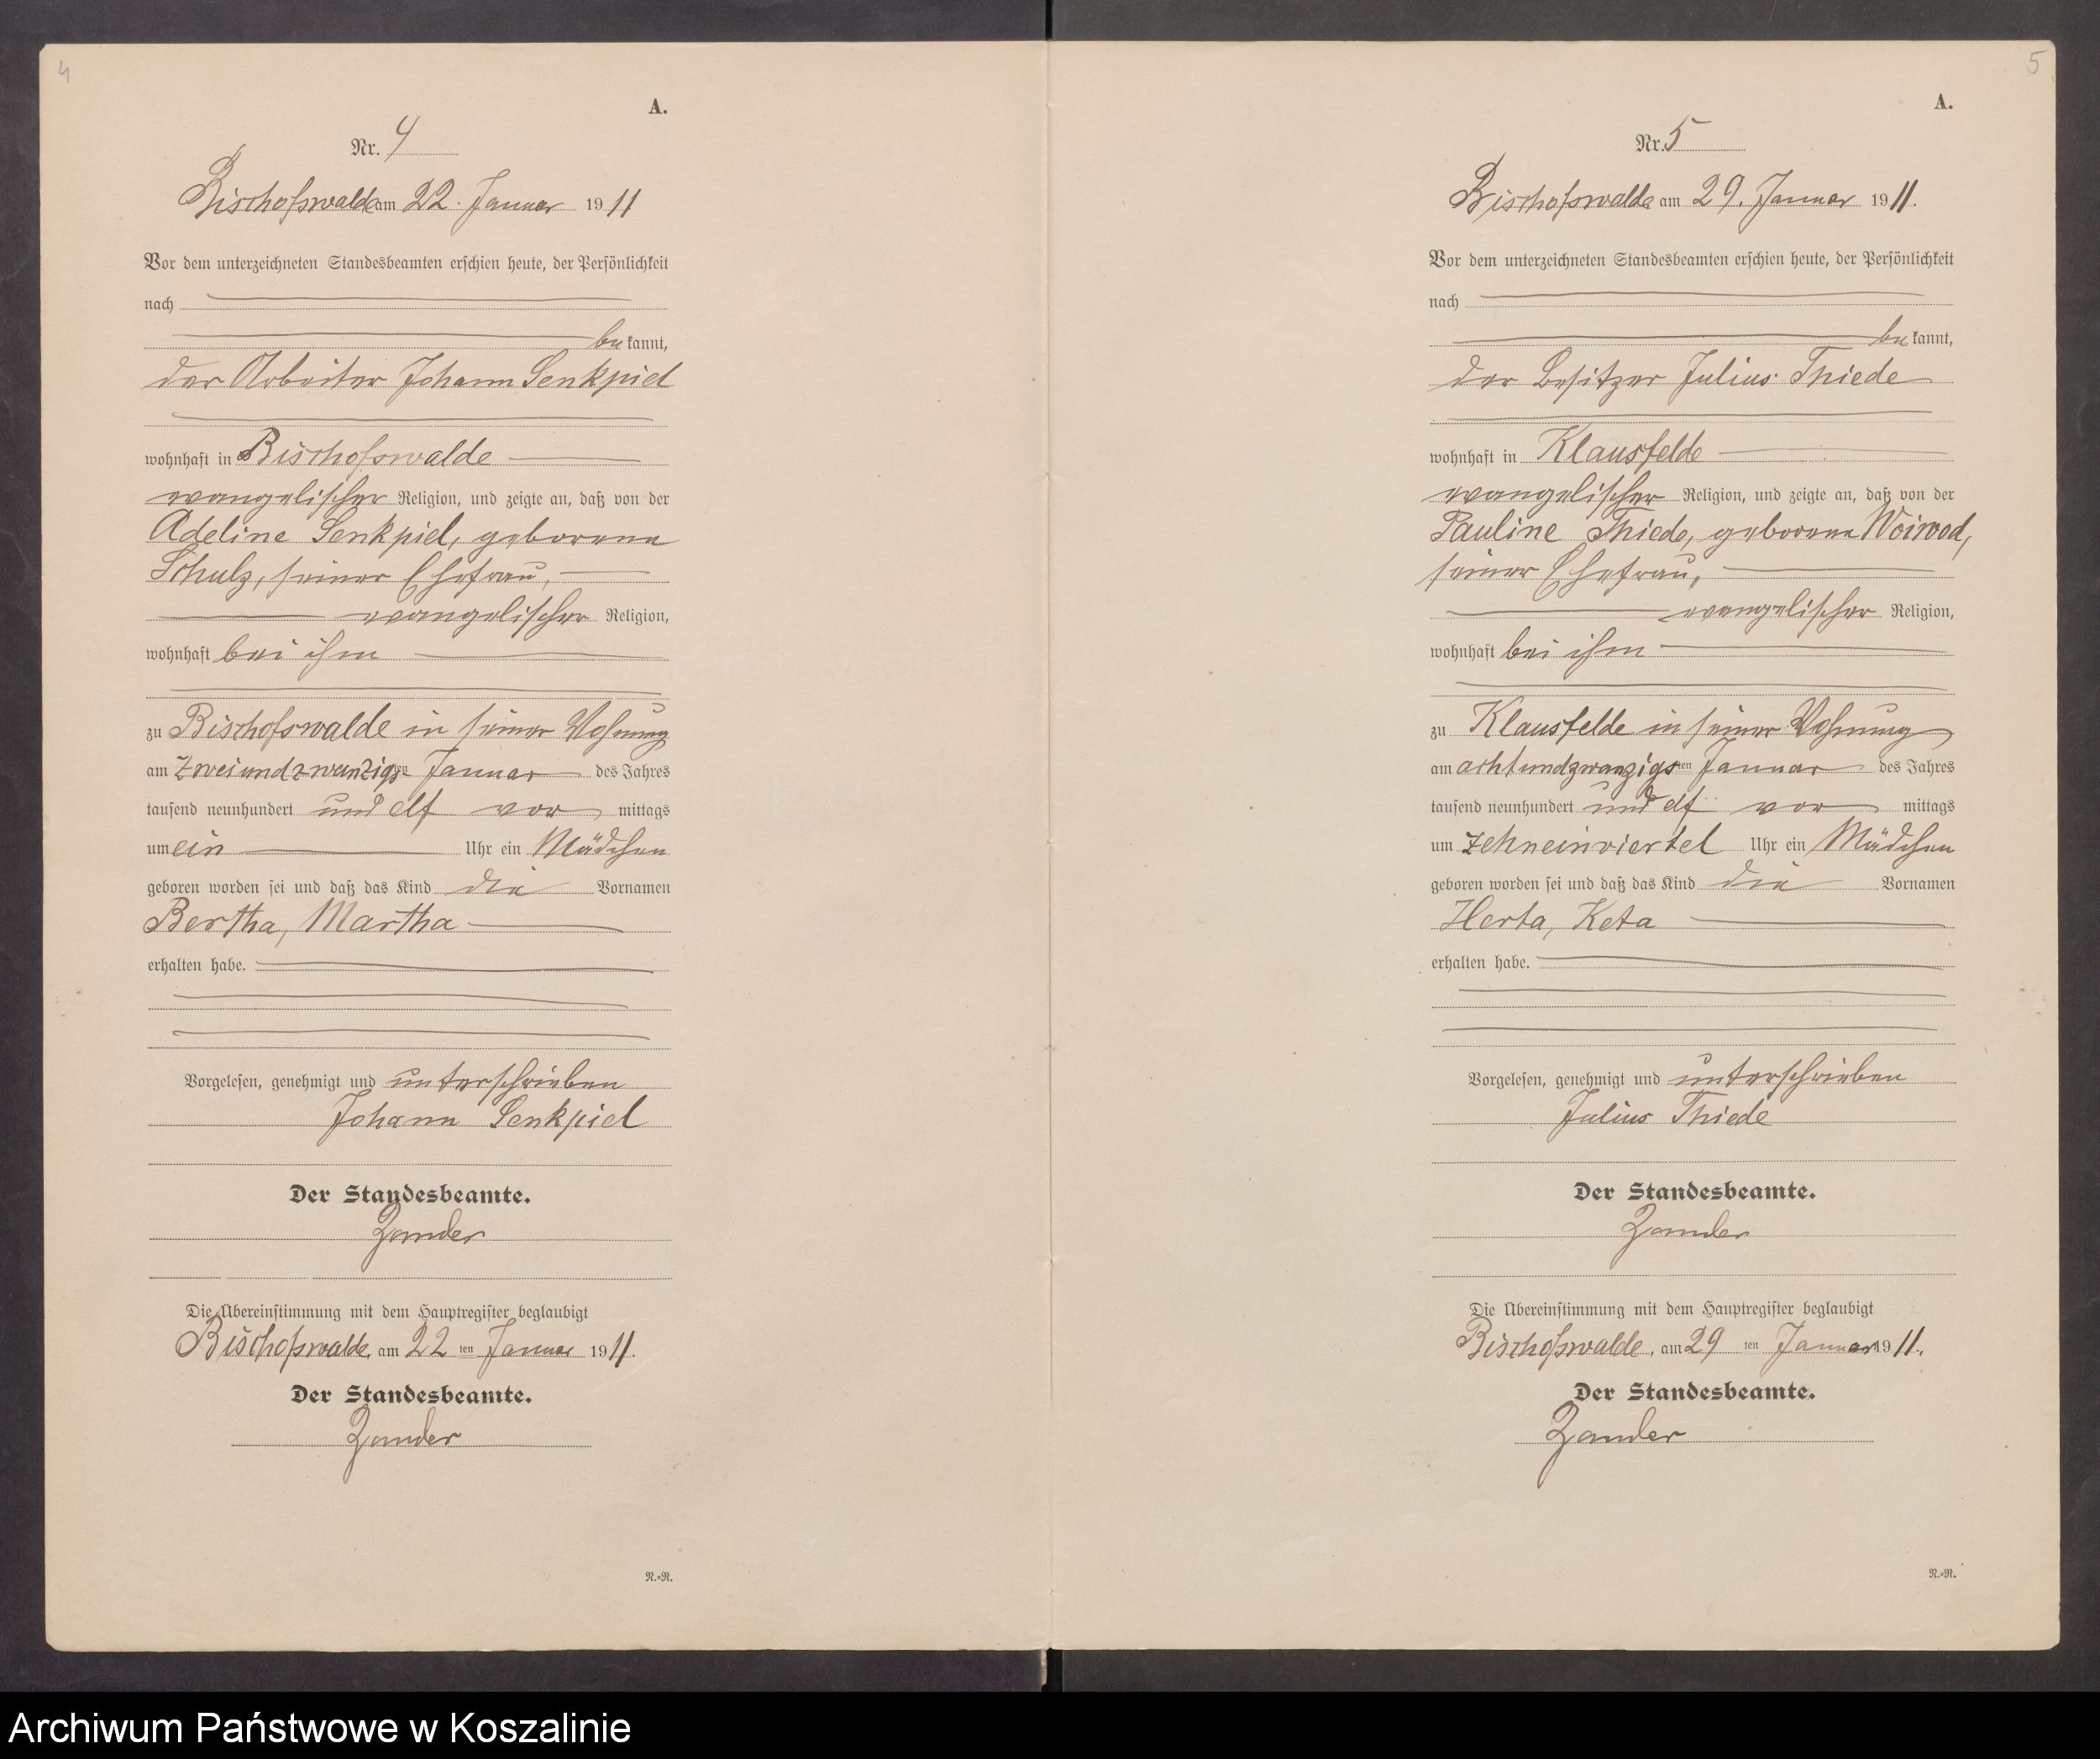 4
A.
Nr. 4
Bischofswalde am 22. Januar 1911
Vor dem unterzeichneten Standesbeamten erschien heute, der Persönlichkeit
nach
bekannt,
der Arbeiter Johann Senkpiel
wohnhaft in Bischofswalde
evangelischer Religion, und zeigte an, daß von der
Adeline Senkpiel, geborene
Schulz, seiner Ehefrau,
evangelischer Religion,
wohnhaft bei ihm
zu Bischofswalde in seiner Wohnung
am zweiundzwanzigsten Januar des Jahres
tausend neunhundert und elf vor mittags
um ein Uhr ein Mädchen
geboren worden sei und daß das Kind die Vornamen
Bertha, Martha
erhalten habe.
Vorgelesen, genehmigt und unterschrieben
Johann Senkpiel
Der Standesbeamte.
Zander
Die Übereinstimmung mit dem Hauptregister beglaubigt
Bischofswalde, am 22 ten Januar 1911.
Der Standesbeamte.
Zander
N.-N.
5
A.
Nr. 5
Bischofswalde am 29. Januar 1911.
Vor dem unterzeichneten Standesbeamten erschien heute, der Persönlichkeit
nach
bekannt,
der Besitzer Julius Thiede
wohnhaft in Klausfelde
evangelischer Religion, und zeigte an, daß von der
Pauline Thiede, geborene Woiwod,
seiner Ehefrau,
evangelischer Religion,
wohnhaft bei ihm
zu Klausfelde in seiner Wohnung
am achtundzwanzigsten Januar des Jahres
tausend neunhundert und elf vor mittags
um zehneinviertel Uhr ein Mädchen
geboren worden sei und daß das Kind die Vornamen
Herta, Keta
erhalten habe.
Vorgelesen, genehmigt und unterschrieben
Julius Thiede
Der Standesbeamte.
Zander
Die Übereinstimmung mit dem Hauptregister beglaubigt
Bischofswalde, am 29 ten Januar 1911.
Der Standesbeamte.
Zander
N.-N.
Archiwum Państwowe w Koszalinie